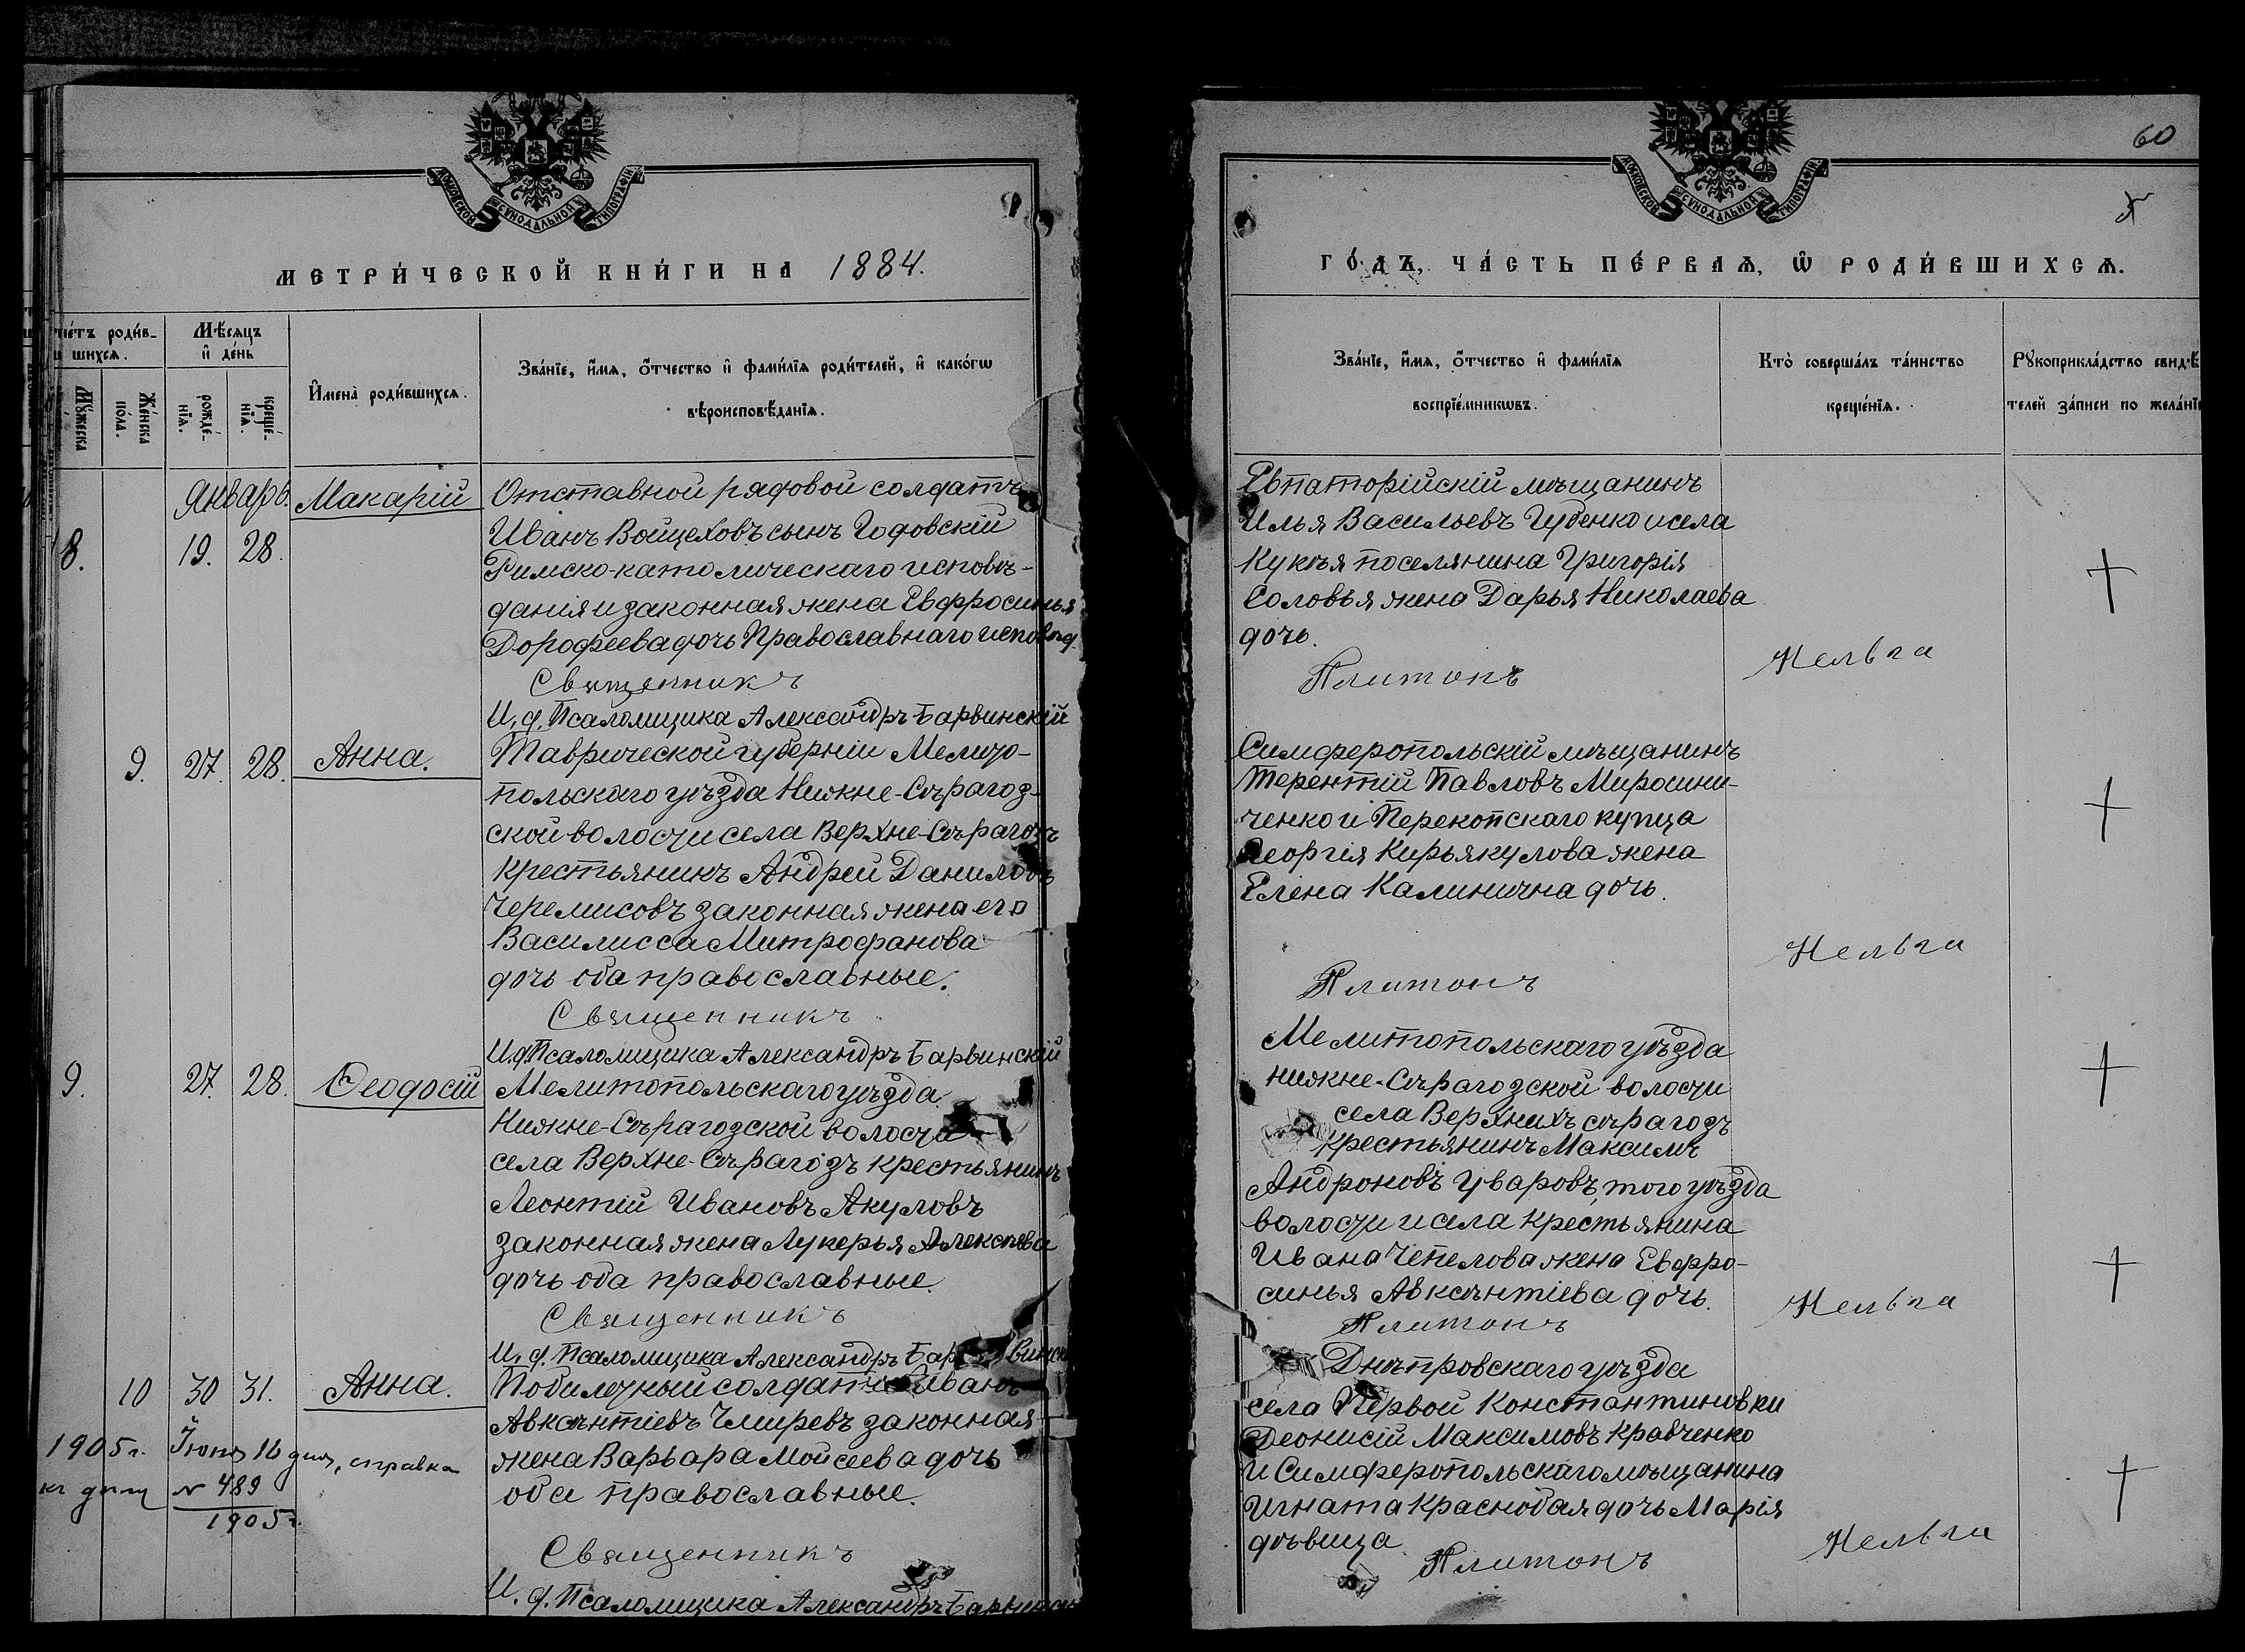 МОСКОВСКОЙ СУНОДАЛЬНОЙ ТИПОГРАФІИ
МЕТРИ́ЧЕСКОЙ КНИ́ГИ НА 1884.
Мѣ́сяцъ и҆ де́нь
роди́в-
шихсѧ.
Му́жеска
Же́нска по́ла.
рожде́-нїѧ.
креще́-нїѧ.
И҆мена̀ роди́вшихсѧ.
Зва́нїе, и҆́мѧ, ѻ҆́тчество и҆ фами́лїѧ роди́телей, и҆ како́гѡ
вѣроисповѣ́данїѧ.
Январь. Макарій Отставной рядовой солдатъ
8. 19. 28. Иванъ Войцеховъ сынъ Годовскій
Римско-католическаго исповѣ-
данія и законная жена Евфросинья
Дорофеева дочь Православнаго исповѣд.
Священникъ
И. д. Псаломщика Александръ Барвинскій
9. 27. 28. Анна. Таврической губерніи Мелито-
польскаго уѣзда Нижне-Сѣрагоз-
ской волости села Верхне-Сѣрагозъ
крестьянинъ Андрей Даниловъ
Черемисовъ законная жена его
Василисса Митрофанова
дочь оба православные.
Священникъ
И. д. Псаломщика Александръ Барвинскій
9. 27. 28. Ѳеодосій Мелитопольскаго уѣзда
Нижне-Сѣрагозской волости
села Верхне-Сѣрагозъ крестьянинъ
Леонтій Ивановъ Акуловъ
законная жена Лукерья Алексѣева
дочь оба православные.
Священникъ
И. д. Псаломщика Александръ Барвинск
10 30 31. Анна. Побилетный солдатъ Иванъ
Авксентіевъ Чмиревъ законная
жена Варвара Мойсеева дочь
оба православные.
1905 г. Іюня 16 дня, справка
№ 489
1905 г.
Священникъ
И. д. Псаломщика Александръ Барвинск
60
МОСКОВСКОЙ СУНОДАЛЬНОЙ ТИПОГРАФІИ
ГО́ДЪ, ЧА́СТЬ ПЕ́РВАѦ, Ѽ РОДИ́ВШИХСѦ.
Зва́нїе, и҆́мѧ, ѻ҆́тчество и҆ фами́лїѧ
воспрїе́мникѡвъ.
Кто̀ соверша́лъ та́инство
креще́нїѧ.
Рꙋкоприкла́дство свидѣ́
телей за́писи по жела́нї
Евпаторійскій мѣщанинъ
Илья Васильевъ Губенко и села
Кукъя поселянина Григорія
Соловья жена Дарья Николаева
дочь.
Платонъ
Кельва
Симферопольскій мѣщанинъ
Терентій Павловъ Мирошни-
ченко и Перекопскаго купца
Георгія Кирьякулова жена
Елена Калинична дочь.
Платонъ
Кельва
Мелитопольскаго уѣзда
нижне-Сѣрагозской волости
села Верхнихъ сѣрагозъ
крестьянинъ Максимъ
Андроновъ Уваровъ, того уѣзда
волости и села крестьянина
Ивана Чепелова жена Евфро-
синья Авксентіева дочь.
Платонъ
Кельва
Днѣпровскаго уѣзда
села Первой Константиновки
Деонисій Максимовъ Кравченко
и Симферопольскаго мѣщанина
Игната Краснобая дочь Марія
дѣвица
Платонъ
Кельва